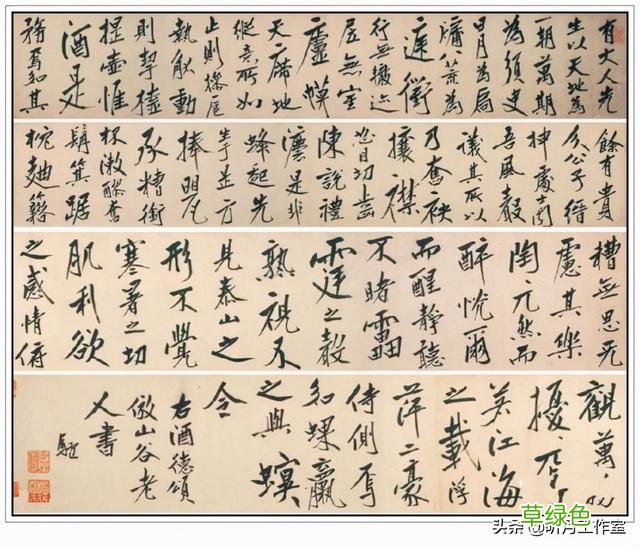 有大人先
生以天地為
一朝萬期
為須臾
日月為扃
牖八荒為
庭衢
行無轍迹
居無室
廬幕
天席地
縱意所如
止則操巵
執觚動
則挈榼
提壺惟
酒是
務焉知其
餘有貴
介公子搢
紳處士聞
吾風聲
議其所以
乃奮袂
攘襟
怒目切齒
陳說禮
灋是非
蜂起先
生于是方
捧罌
承糟銜
杯漱醪奮
髯箕踞
枕麯籍
糟無思無
慮其樂
陶〻兀然而
醉恍爾
而醒靜聽
不睹雷
霆之聲
熟視不
見泰山之
形不覺
寒暑之切
肌利欲
之感情俯
觀萬
擾〻焉
若江海
之載浮
萍二豪
侍側焉
如蜾蠃
之與螟
令
右酒德頌
倣山谷老
人書
头条 @明月工作室
草绿色